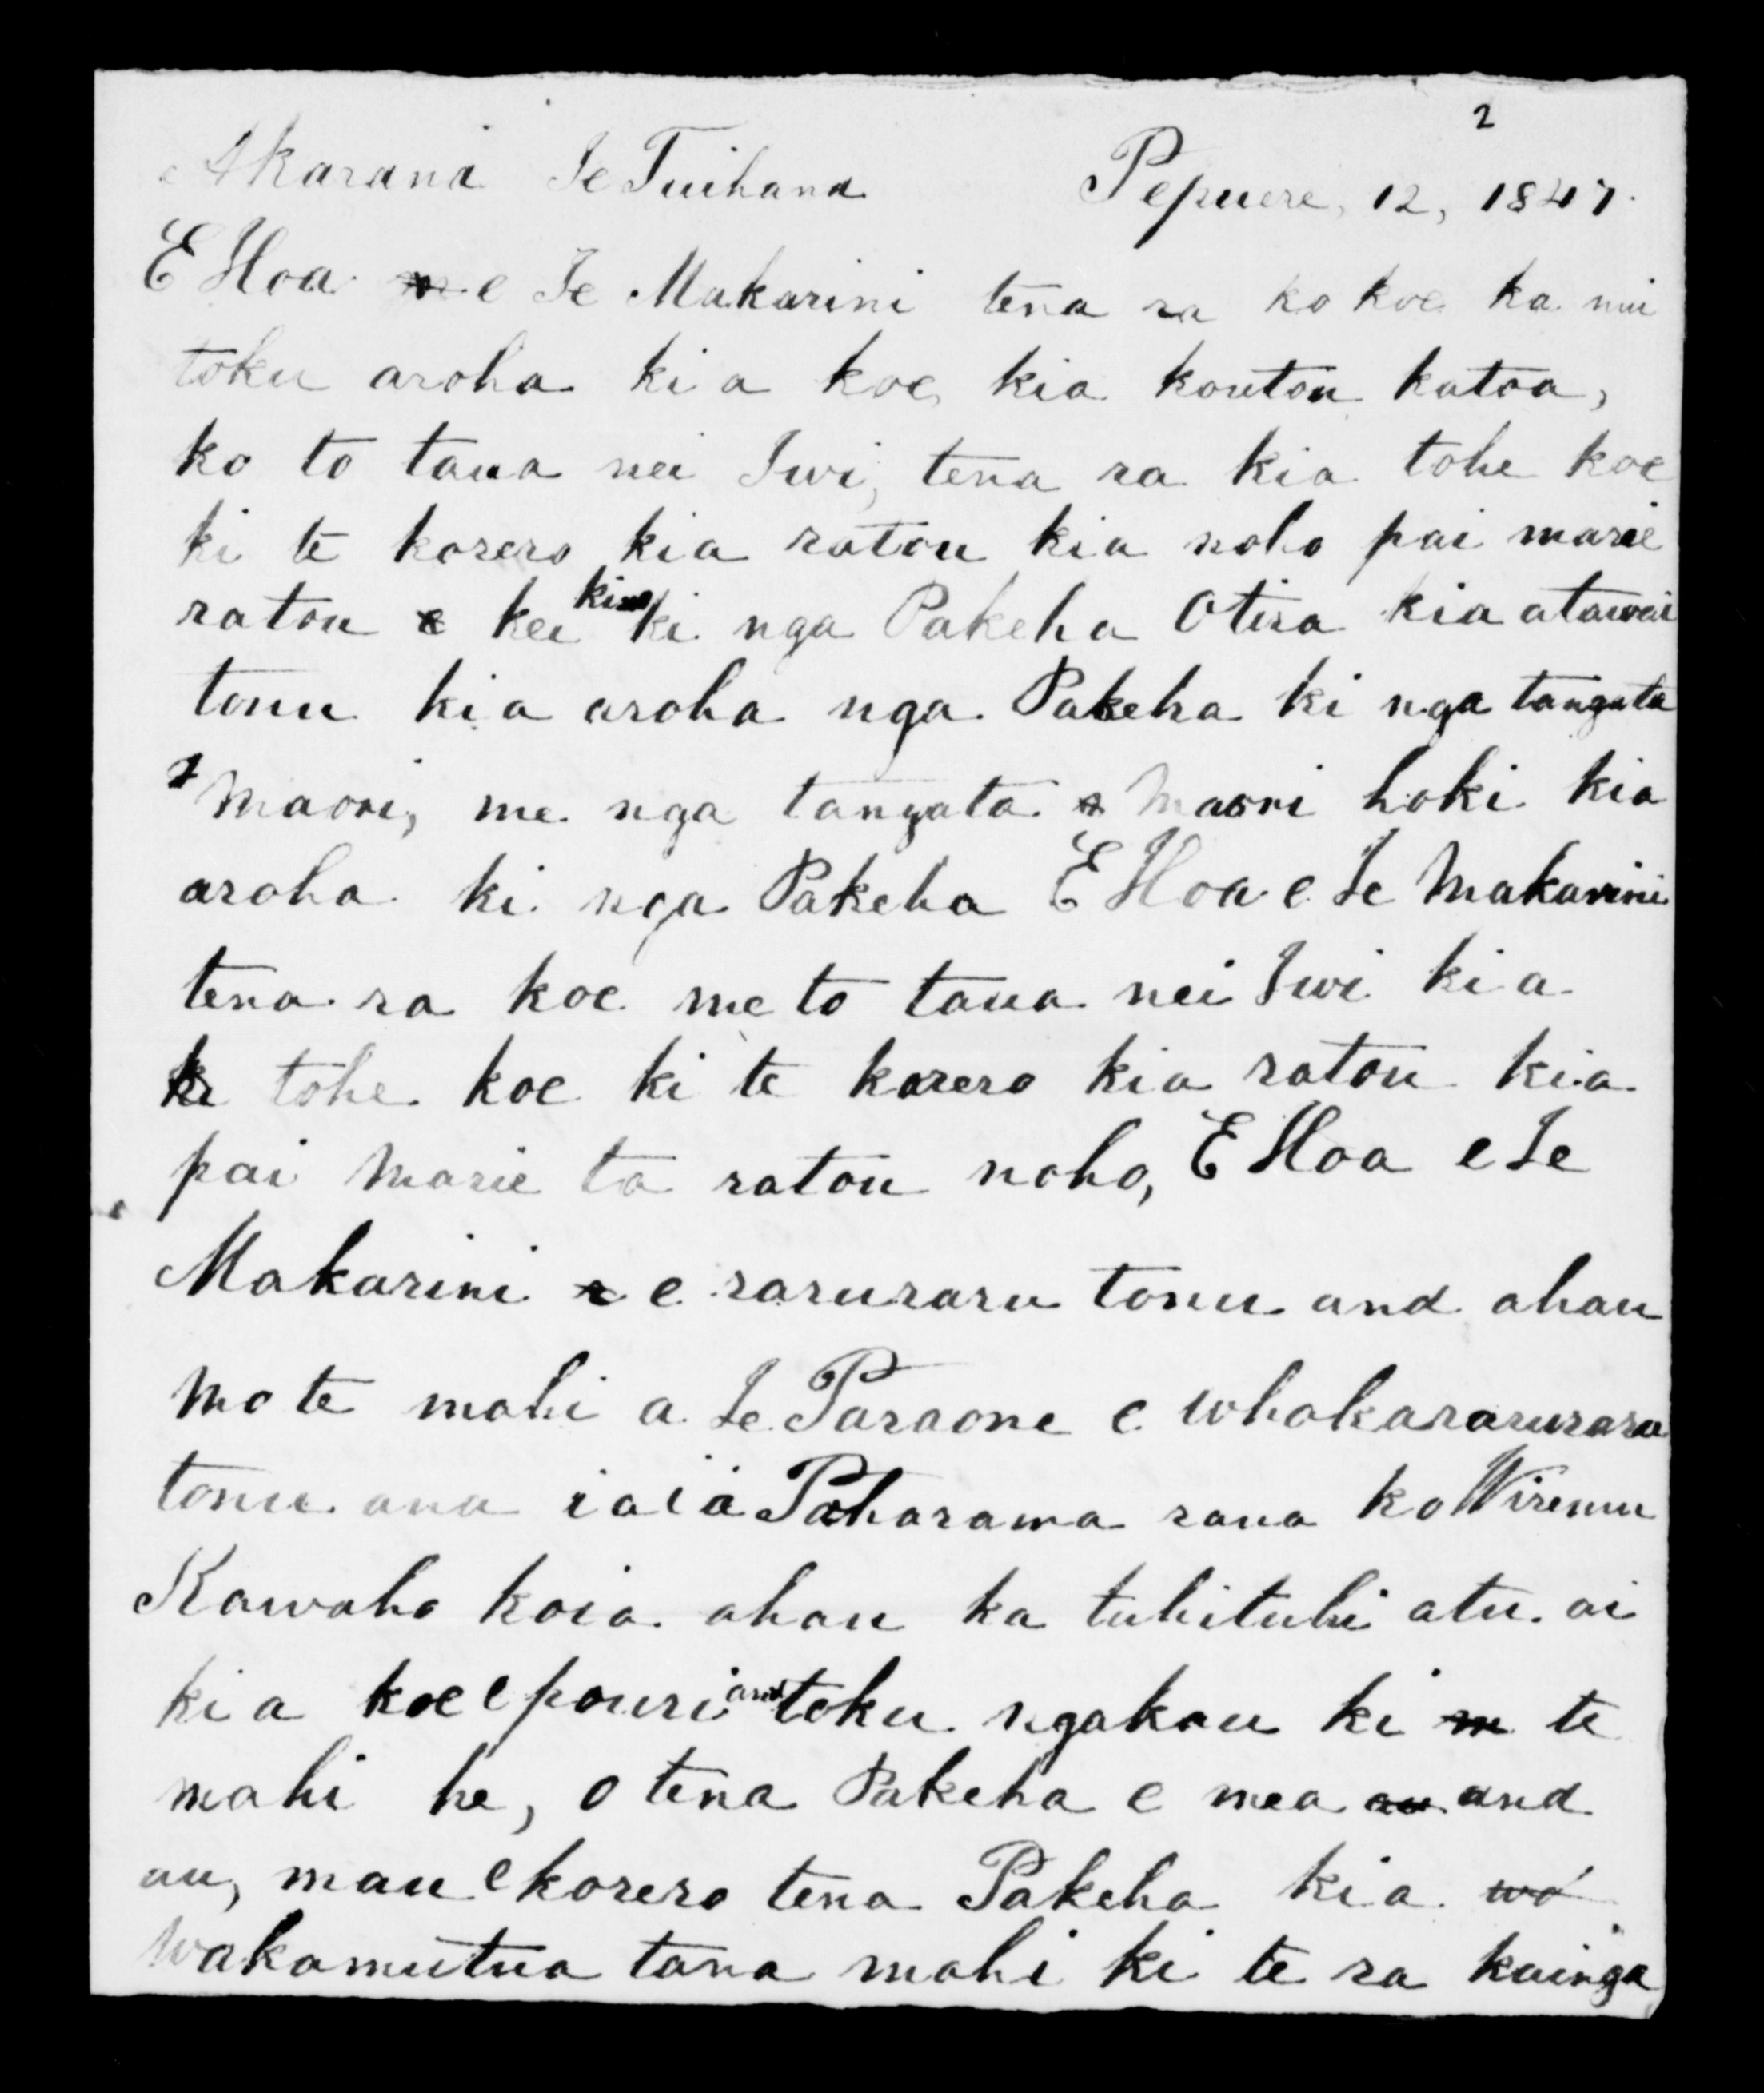 2
Akarana Te Tuihana Pepuere, 12, 1847.
E Hoa e Te Makarini tena ra ko koe ka nui
toku aroha ki a koe, kia koutou katoa,
ko to taua nei Iwi, tena ra kia tohe koe
ki te korero kia ratou kia noho pai marie
ratou kei ki nga Pakeha Otira kia atawai
tonu kia aroha nga Pakeha ki nga tangata
Maori, me nga tangata Maori hoki kia
aroha ki nga Pakeha E Hoa e Te Makarini
tena ra koe me to taua nei Iwi kia
tohe koe ki te korero kia ratou kia
pai Marie ta ratou noho, E Hoa e Te
Makarini e raruraru tonu ana ahau
Mo te mahi a Te Paraone e whakararuraru
tonu ana i a i a Paharama raua ko Wiremu
Kawaho koia ahau ka tuhituhi atu ai
ki a koe e pouri ana toku ngakau ki te
mahi he, o tena Pakeha e mea ana
au, mau e korero tena Pakeha kia
Wakamutua tana mahi ki te ra kainga